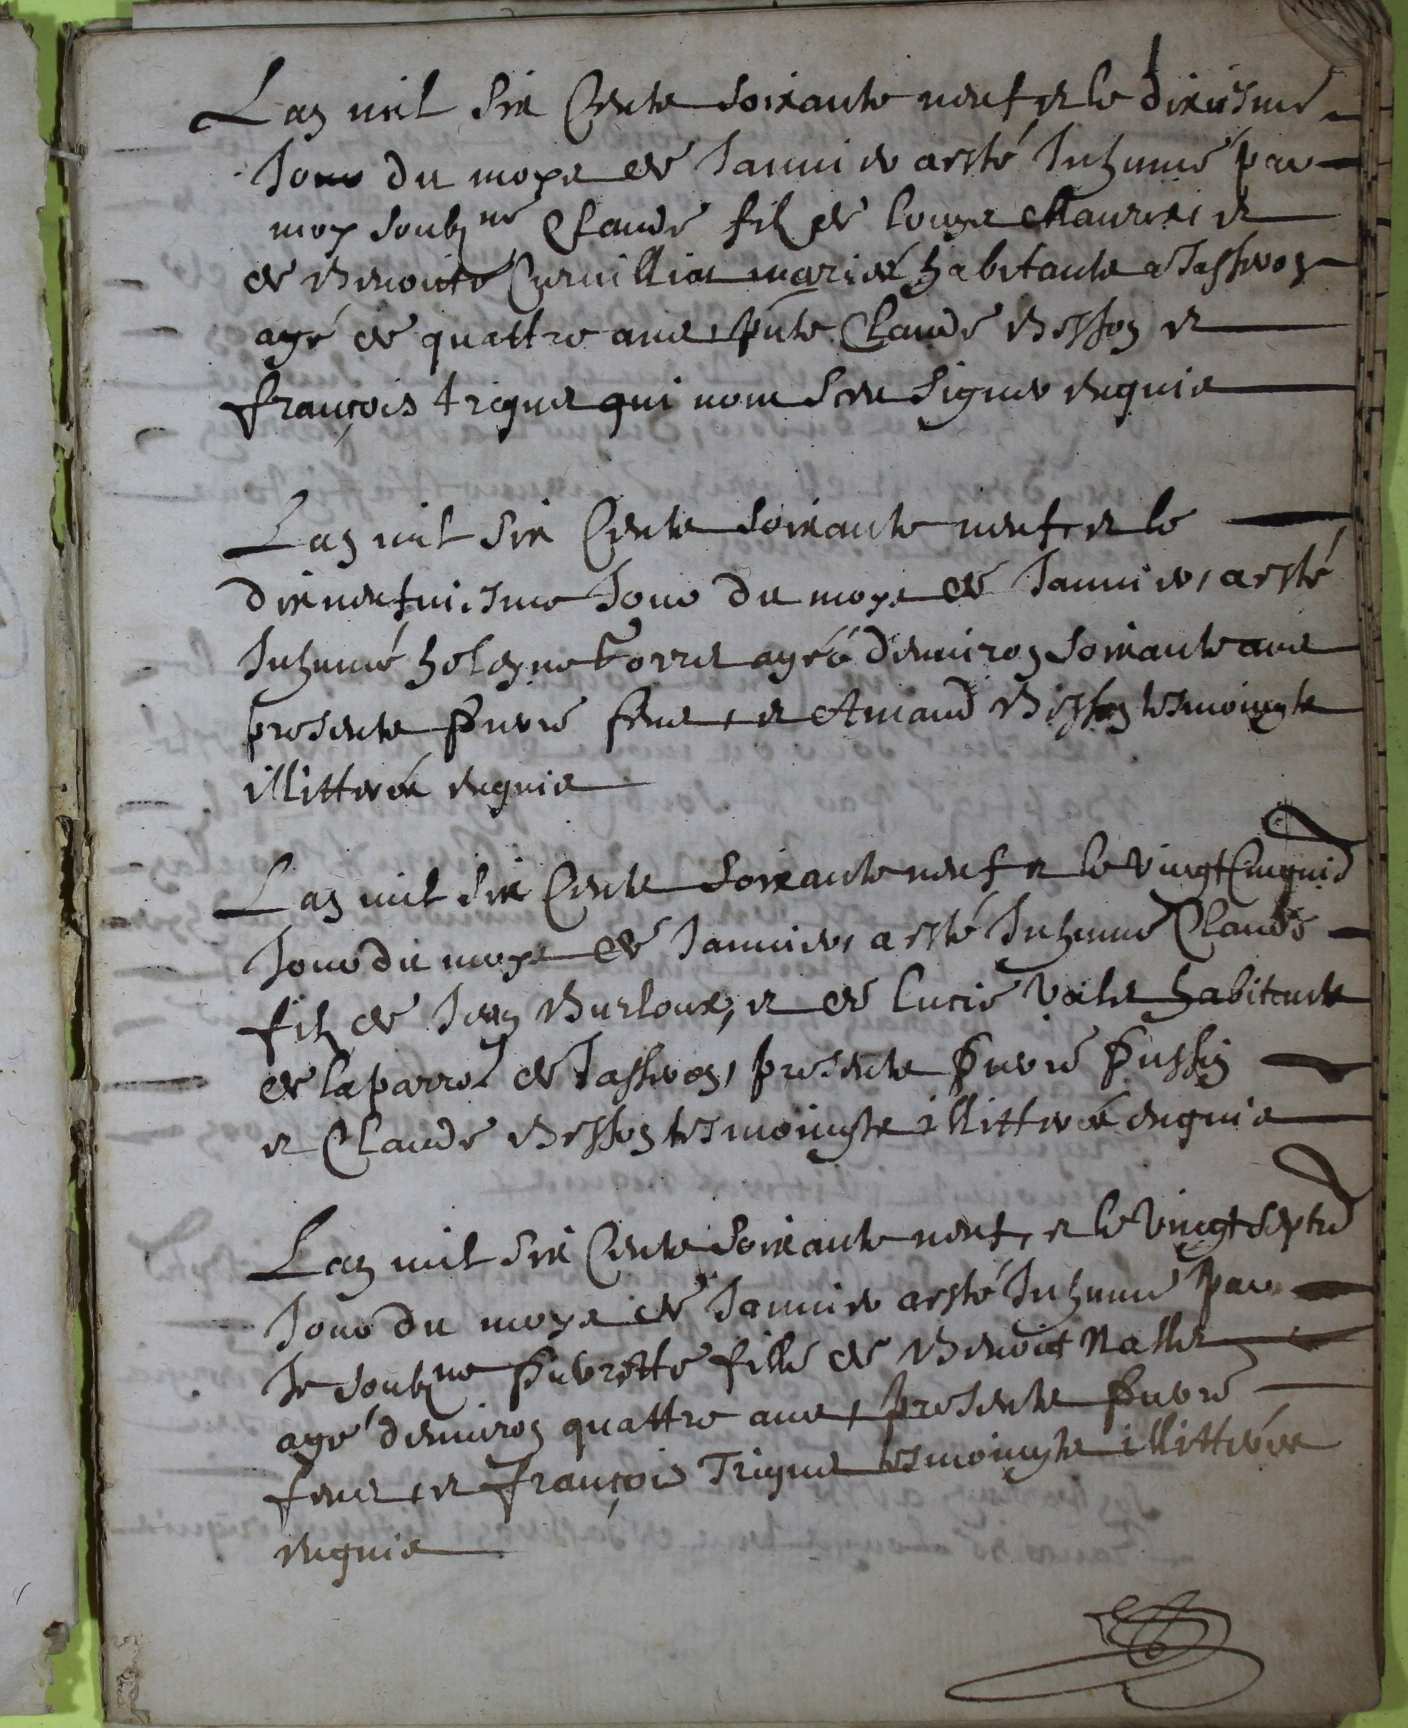 Lan mil six Cents soixante neuf et le dixiesme
Jour du moys de Janvier a esté Inhumé par
moy soubzne Claude filz de Louys et
de Benoicte mariés habitants a Tassins
agé de quattre ans, pnts Claude Besson et
françois triquet qui nont sceu signer enquis
Lan mil six Cents soixante neuf, et le
dixneufviesme Jour du moys de Janvier, a esté
Inhumé agéé denviron soixante ans
presents Pierre et Amand Besson tesmoingts
illitterés enquis
Lan mil six Cents soixante neuf et le vingt Cinquie
Jour du moys de Janvier, a esté Inhumé Claude
filz de Jean Burloux, et de Lucie habitants
de la parrose de presents Pierre Pussin
et Claude Besson tesmoingts illitterés enquis
Lan mil six Cents soixante neuf, et le vingt septie
Jour du moys de Janvier a esté Inhumé par
Je soubzne Pierrette fille de Benoict Nallet
agé denviron quattre ans, presents Pierre
et françois Triquet tesmoingts illitterés
enquis